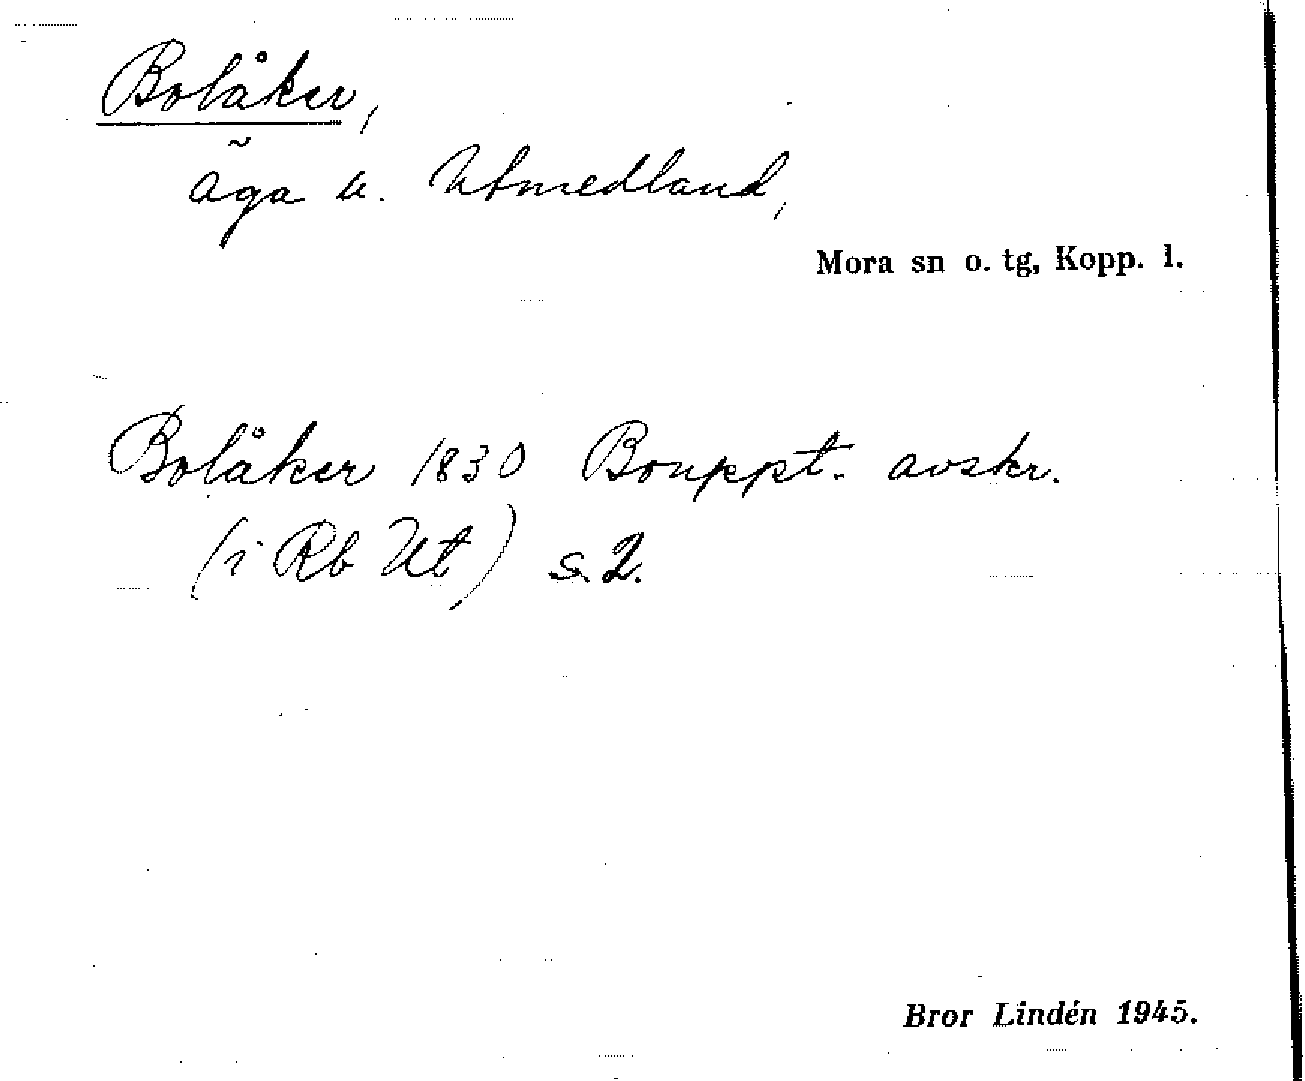 Bolåker,
äga u. Utmedland,
Mora sn o. tg, Kopp. l.
Bolåker 1830 Bouppt. avskr.
(i Rb Ut) s. 2.
Bror Lindén 1945.